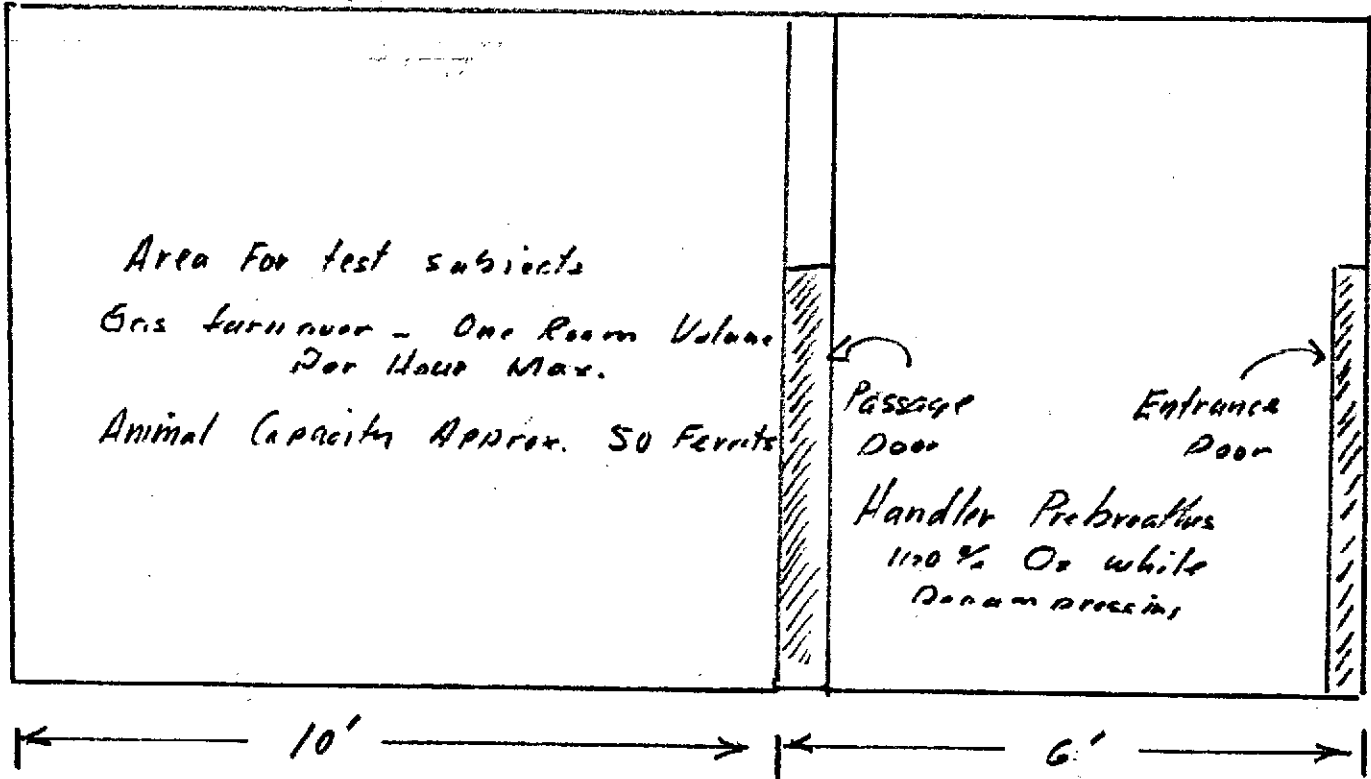 Area For test subjects
Gas turnover - One Room Volume
Per Hour Max.
Animal Capacity Approx. 50 Ferrets
Passage
Door
Entrance
Door
Handler Prebreathes
100% O2 while
Decompressing
10'
6'